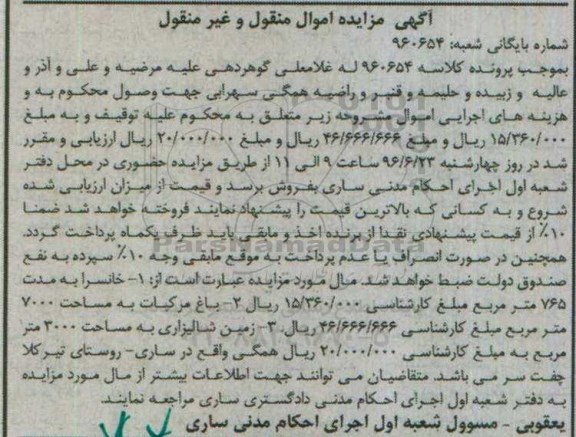 آگهی مزایده اموال منقول و غیر منقول
شماره بایگانی شعبه: ۹۶۰۶۵۴
بموجب پرونده کلاسه ۹۶۰۶۵۴ له غلامعلی گوهردهی علیه مرضیه و علی و آذر و
عالیه و زبیده و حلیمه و قنبر و راضیه همگی سهرابی جهت وصول محکوم به و
هزینه های اجرایی اموال مشروحه زیر متعلق به محکوم علیه توقیف و به مبلغ
۱۵/۳۶۰/۰۰۰ ریال و مبلغ ۴۶/۶۶۶/۶۶۶ ریال و مبلغ ۲۰/۰۰۰/۰۰۰ ریال ارزیابی و مقرر
شد در روز چهارشنبه ۹۶/۶/۲۳ ساعت ۹ الی ۱۱ از طریق مزایده حضوری در محل دفتر
شعبه اول اجرای احکام مدنی ساری بفروش برسد و قیمت از میزان ارزیابی شده
شروع و به کسانی که بالاترین قیمت را پیشنهاد نمایند فروخته خواهد شد ضمنا
۱۰٪ از قیمت پیشنهادی نقدا از برنده اخذ و مابقی باید ظرف یکماه پرداخت گردد.
همچنین در صورت انصراف یا عدم پرداخت به موقع مابقی وجه ۱۰٪ سپرده به نفع
صندوق دولت ضبط خواهد شد. مال مورد مزایده عبارت است از: ۱- خانسرا به مدت
۷۶۵ متر مربع مبلغ کارشناسی ۱۵/۳۶۰/۰۰۰ ریال ۲- باغ مرکبات به مساحت ۷۰۰۰
متر مربع مبلغ کارشناسی ۴۶/۶۶۶/۶۶۶ ریال. ۳- زمین شالیزاری به مساحت ۳۰۰۰ متر
مربع به مبلغ کارشناسی ۲۰/۰۰۰/۰۰۰ ریال همگی واقع در ساری- روستای تیرکلا
چفت سر می باشد. متقاضیان می توانند جهت اطلاعات بیشتر از مال مورد مزایده
به دفتر شعبه اول اجرای احکام مدنی دادگستری ساری مراجعه نمایند.
یعقوبی - مسوول شعبه اول اجرای احکام مدنی ساری
ParsNamadData